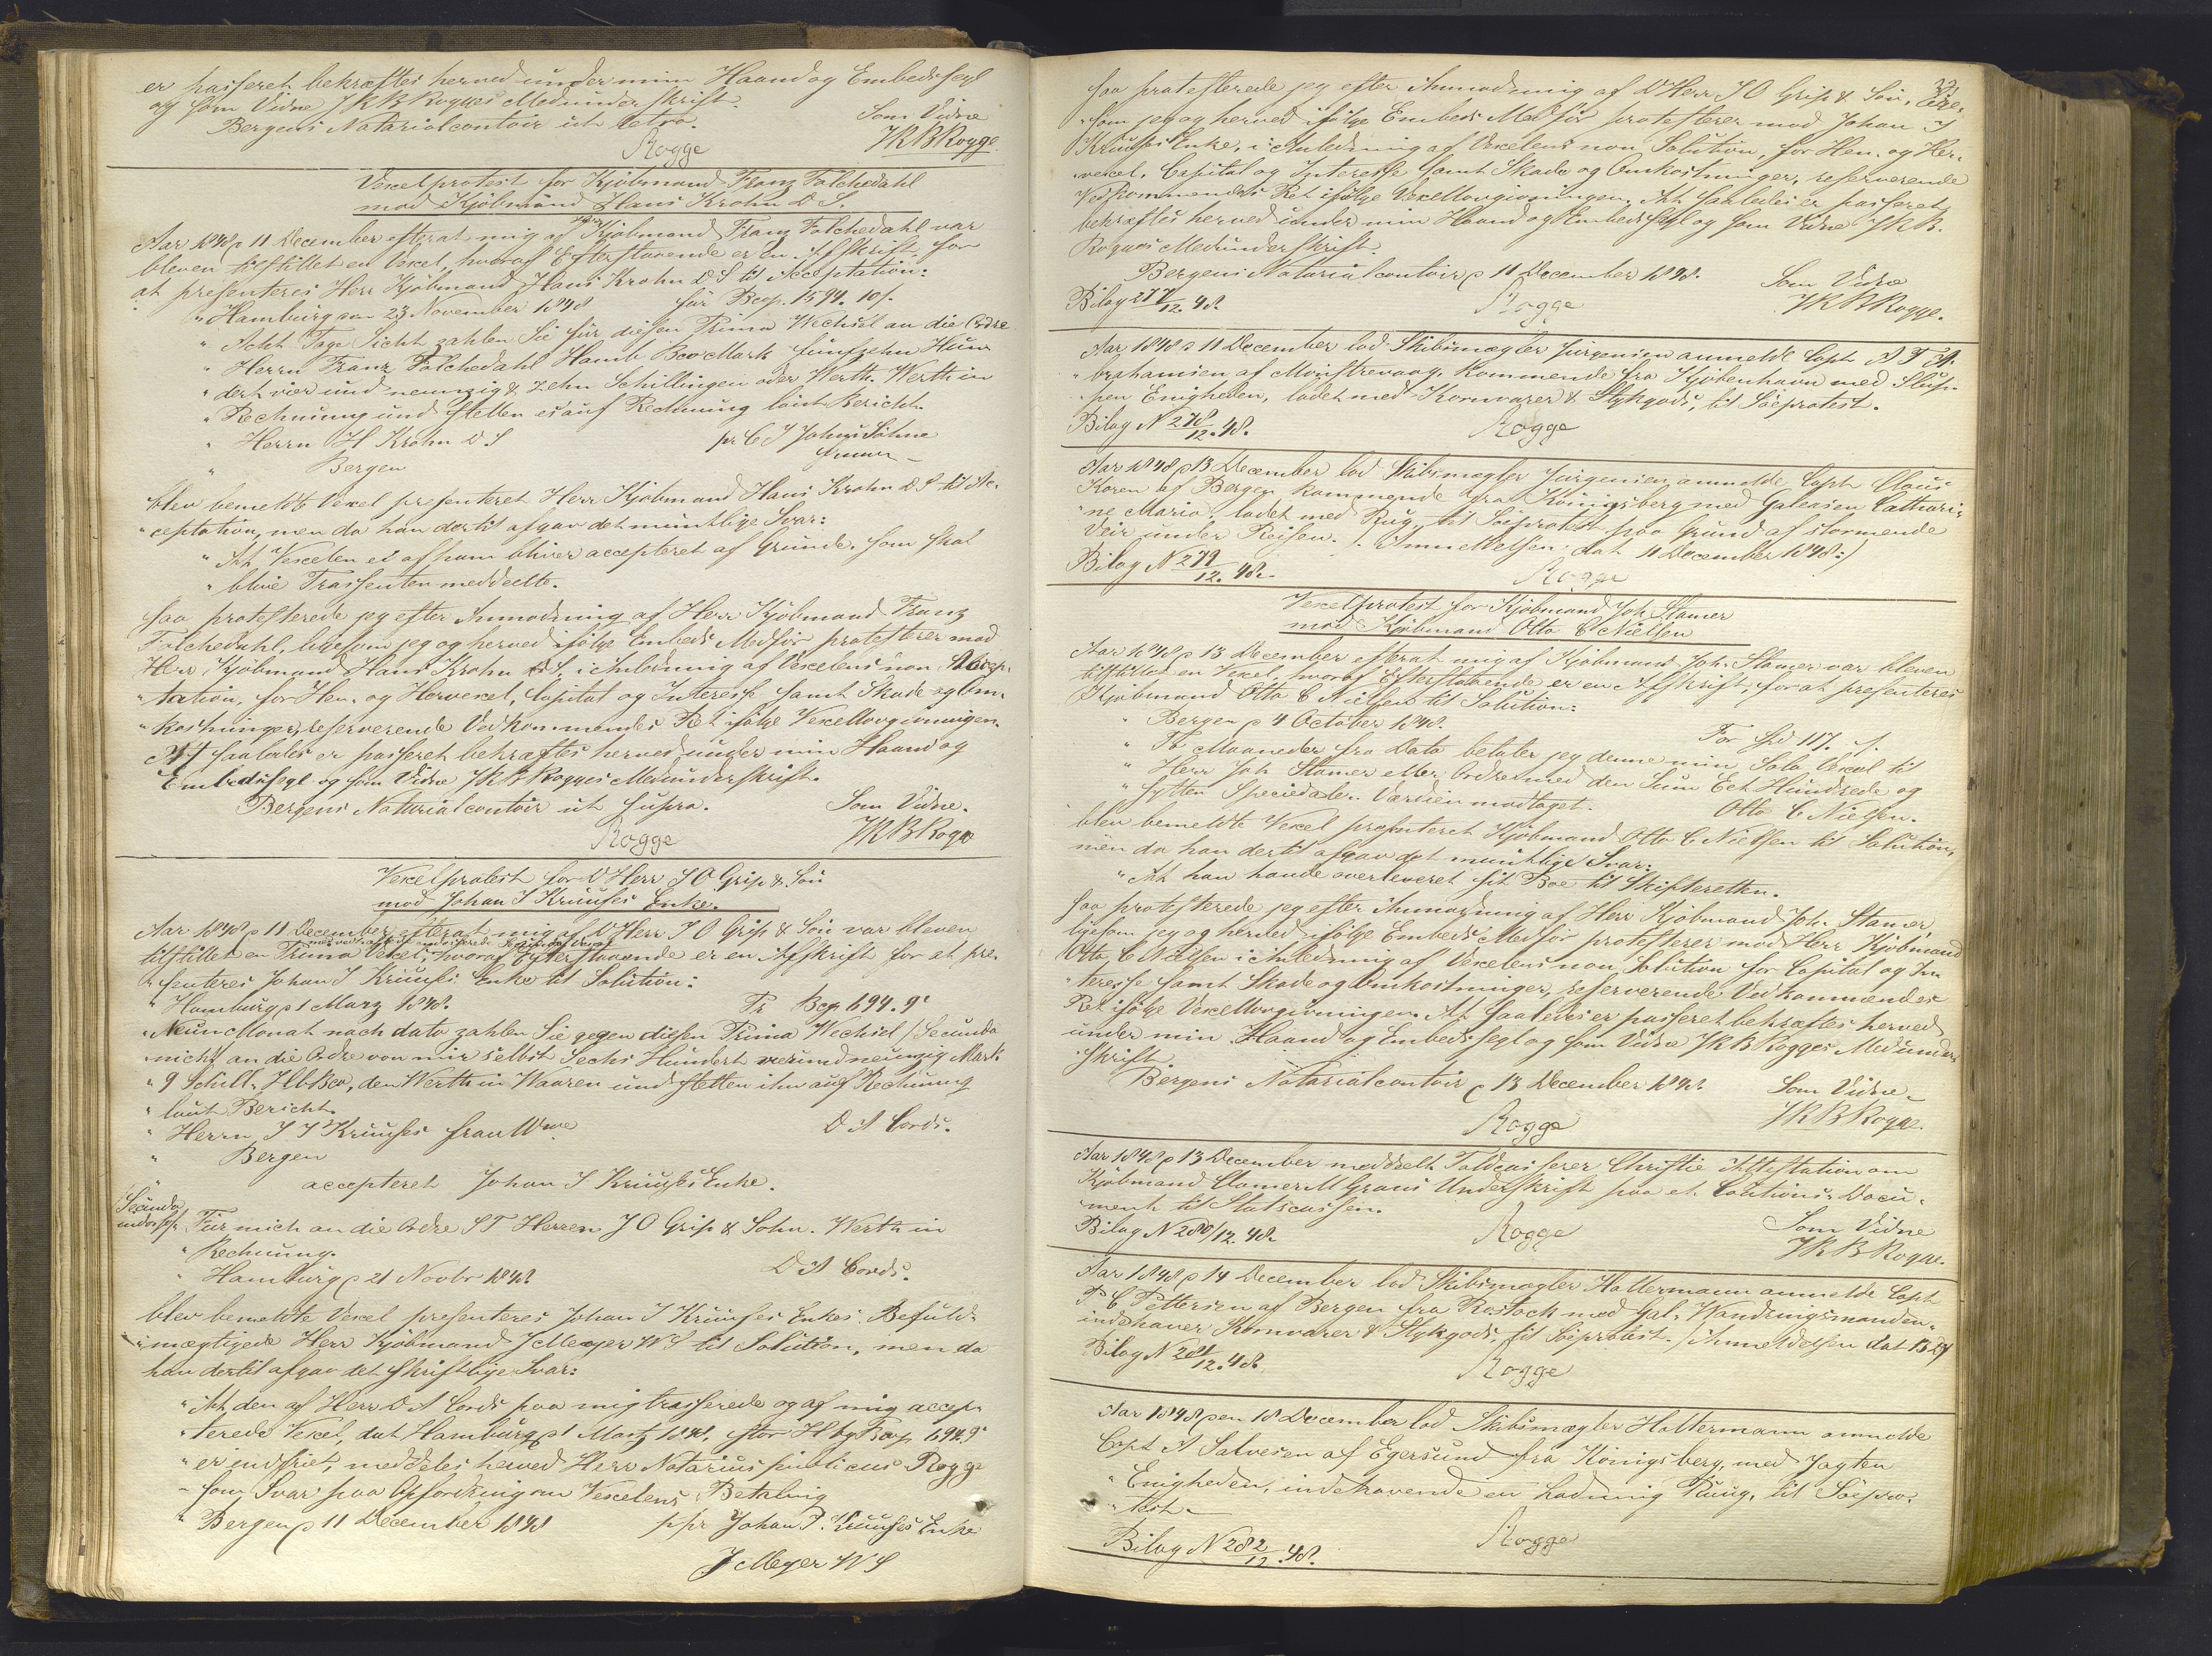 er passeret bekræftes herved under min Haand og Embedssegl
og som Vidne J K B Rogges Medunderskrift.
Bergens Notarialcontoir ut retro. Som Vidne
Rogge J K B Rogge
Vexelprotest for Kjöbmand Franz Falchedahl
mod Kjöbmand Hans Krohn D. S.
Aar 1848 p 11 December efterat mig af Herr Kjöbmand Franz Falchedahl var
bleven tilstillet en Vexel, hvoraf Efterstaaende er en Afskrift, for
at presenteres Herr Kjöbmand Hans Krohn D S til Acceptation:
"Hamburg am 23 November 1848 für Bcop. 1594. 10/.
" Acht Tage Sicht zahlen Sie für diesen Prima Wechsel an die Ordre
" Herrn Franz Falchedahl Hamb Bco Mark fünfzehn Hun
" dert vier und neunzig & zehn Schillingen oder Werth. Werth in
" Rechnung und stellen es auf Rechnung laut Bericht.
" Herrn H Krohn D S pr. C J Johns Söhne
" Bergen
blev bemeldte Vexel presenteret Herr Kjöbmand Hans Krohn D S til Ac-
"ceptation, men da han dertil afgav det mundtlige Svar:
" At Vexelen ei af ham bliver accepteret af Grunde, som skal
" blive Trassenten meddeelte.
saa protesterede jeg efter Anmodning af Herr Kjöbmand Franz
Falchedahl, ligesom jeg og herved ifölge Embeds Medför protesterer mod
Herr Kjöbmand Hans Krohn D S, i Anledning af Vexelens non Accep-
"tation, for Hen- og Hervexel, Capital og Interesse samt Skade og Om-
"kostninger, reserverende Vedkommendes Ret ifölge Vexellovgivningen.
At saaledes er passeret bekræftes herved under min Haand og
Embedssegl og som Vidne J K B Rogges Medunderskrift.
Bergens Notarialcontoir ut supra. Som Vidne.
Rogge J K B Rogge
Vexelprotest for D'Herr J O Grip & Sön
mod Johan J Kruuses Enke.
Aar 1848 p 11 December efterat mig af D'Herr J O Grip & Sön var bleven
tilstillet en Prima Vexel, hvoraf Efterstaaende er en Afskrift for at pre-
"senteres Johan J Kruuses Enke til Solution:
" Hamburg p 1 Marz 1848. Pr Bcop 694. 9/
" Neun Monat nach dato zahlen Sie gegen diesen Prima Wechsel /: Secunda
"nicht an die Ordre von mir selbst Sechs Hundert vierundneunzig Mark
" 9 Schill. Hb Bco, den Werth in Waaren und stellen ihn auf Rechnung
" laut Bericht.
" Herrn J J Kruuses frau Wwe D A Cords.
" Bergen
" accepteret Johan J Kruuses Enke.
Secunda
Für mich an die Ordre ST Herren J O Grip & Sohn. Werth in
" Rechnung.
" Hamburg p 21 Novbr 1848 D A Cords.
blev bemeldte Vexel presenteres Johan J Kruuses Enkes Befuld-
"mægtigede Herr Kjöbmand J Meyer W S til Solution, men da
han dertil afgav det skriftlige Svar:
"At den af Herr D A Cords paa mig trasserede og af mig accep-
"terede Vexel, dat Hamburg p 1 Martz 1848, stor Hbg Bcop 694.9/
" er indfriet, meddeles herved Herr Notarius publicus Rogge
" som Svar paa Opfordring om Vexelens Betaling
" Bergen p 11 December 1848 ppr Johan J. Kruuses Enke
J Meyer W S
saa protesterede jeg efter Anmodning af D'Herr J O Grip & Sön, lige-
"som jeg og herved ifölge Embeds Medför protesterer mod Johan J
Kruuses Enke, i Anledning af Vexelens non Solution, for Hen- og Her-
"vexel, Capital og Interesse samt Skade og Omkostninger, reserverende
Vedkommendes Ret ifölge Vexellovgivningen. At saaledes er passeret
bekræftes herved under min Haand og Embedssegl og som Vidne J K B.
Rogges Medunderskrift.
Bergens Notarialcontoir p 11 December 1848. Som Vidne
Bilag 277/12.48. Rogge J K B Rogge.
Aar 1848 p 11 December lod Skibsmægler Jürgensen anmelde Capt A F A-
"brahamsen af Monstrevaag, kommende fra Kjöbenhavn med Slup-
"pen Enigheden, ladet med Kornvarer & Stykgods, til Söeprotest.
Bilag N 278/12.48. Rogge
Aar 1848 p 13 December lod Skibsmægler Jürgensen anmelde Capt Claus
Koren af Bergen kommende fra Königsberg med Galeasen Cathari-
"ne Maria, ladet med Rug, til Söeprotest paa Grund af stormende
Veir under Reisen. /: Anmeldelsen dat 11 December 1848:/
Bilag N 279/12.48. Rogge
Vexelprotest for Kjöbmand Joh. Stamer
mod Kjöbmand Otto C Nielsen
Aar 1848 p 13 December efterat mig af Kjöbmand Joh. Stamer var bleven
tilstillet en Vexel, hvoraf Efterstaaende er en Afskrift, for at presenteres
Kjöbmand Otto C Nielsen til Solution:
" Bergen p 4 October 1848. For Spd 117. /.
" To Maaneder fra Dato betaler jeg denne min Sola Vexel til
" Herr Joh Stamer eller Ordre med den Sum Eet Hundrede og
" sytten Speciedaler. Værdien modtaget. Otto C Nielsen.
blev bemeldte Vexel presenteret Kjöbmand Otto C Nielsen til Solution,
men da han dertil afgav det mundtlige Svar:
"At han havde overleveret sit Boe til Skifteretten.
saa protesterede jeg efter Anmodning af Herr Kjöbmand Joh. Stamer,
ligesom jeg og herved ifölge Embeds Medför protesterer mod Herr Kjöbmand
Otto C Nielsen i Anledning af Vexelens non Solution for Capital og In-
"teresse samt Skade og Omkostninger, reserverende Vedkommendes
Ret ifölge Vexellovgivningen. At saaledes er passeret bekræftes herved
under min Haand og Embedssegl og som Vidne J K B Rogges Medunder-
"skrift.
Bergens Notarialcontoir p 13 December 1848. Som Vidne
Rogge J K B Rogge.
Aar 1848 p 13 December meddeelt Toldcasserer Christie Attestation om
Kjöbmand Clamer M Grans Underskrift paa et Cautions-Docu-
"ment til Statscassen. Som Vidne
Bilag N 280/12.48. Rogge J K B Rogge.
Aar 1848 p 14 December lod Skibsmægler Holtermann anmelde Capt
P C Pettersen af Bergen fra Rostock med Gal. Wandringsmanden,
indehaver Kornvarer & Stykgods, til Söeprotest. /: Anmeldelsen dat 13 ds:/
Bilag N 281/12.48. Rogge
Aar 1848 p en 18 December lod Skibsmægler Holtermann anmelde
Capt A Salvesen af Egersund fra Königsberg, med Jagten
" Enigheden, indehavende en Ladning Ruug, til Söepro-
"test.
Bilag N 282/12.48. Rogge